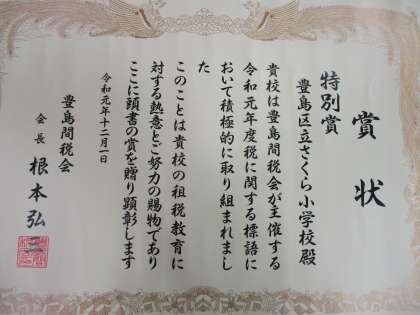 賞状
特別賞
豊島区立さくら小学校殿
貴校は豊島間税会が主催する
令和元年度税に関する標語に
おいて積極的に取り組まれまし
た
このことは貴校の租税教育に
対する熱意とご努力の賜物であり
ここに頭書の賞を贈り顕彰します
令和元年十二月一日
豊島間税会
会長 根本弘三